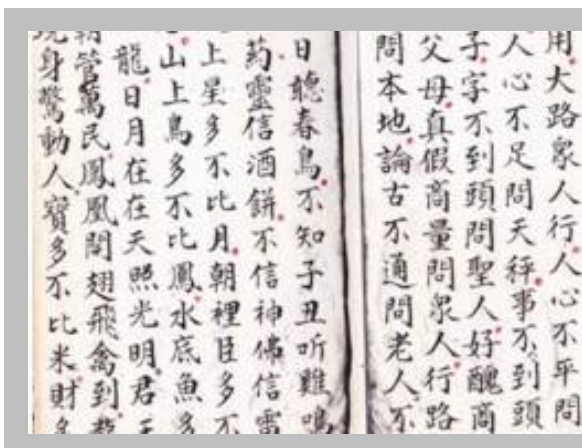 用大路眾人行人心不平問
人心不足問天秤事不到頭
子字不到頭問聖人好醜商
父母真假商量問眾人行路
問本地論古不通問老人不
日聽春鳥不知子丑听雞鳴
药靈信酒餅不信神佛信雷
上星多不比月朝裡臣多不
山上鳥多不比鳳水底魚多
龍日月在在天照光明君
管萬民鳳凰開翅飛禽到
身驚動人寶多不比米財多